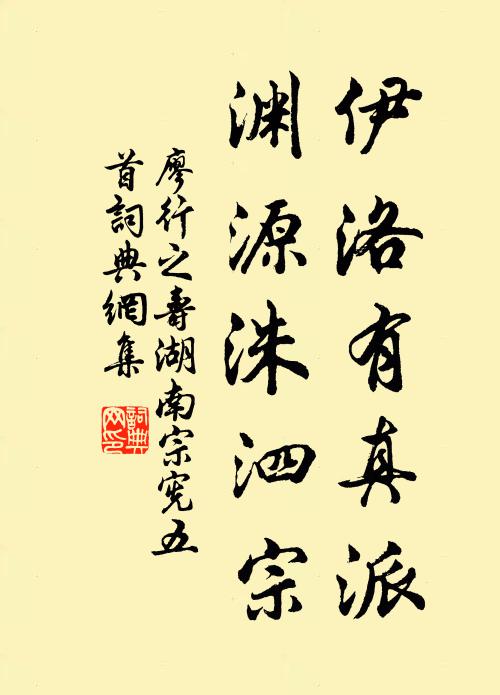 伊洛有真派
渊源洙泗宗
廖行之壽湖南宗宪五
首詞典網集
詞典网印